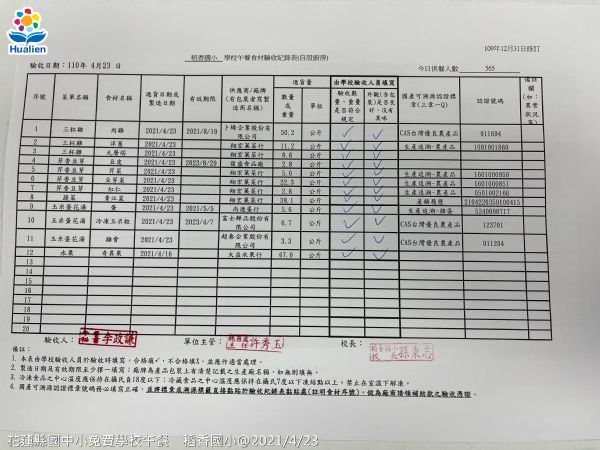 Hualien
109年12月31日修訂
稻香國小 學校午餐食材驗收紀錄表(自設廚房)
驗收日期：110年 4月23日 今日供餐人數 565
序號 菜單名稱 食材名稱 進貨日期或製造日期 有效期限 供應商/廠牌(有包裝者寫製造商名稱) 進貨量 數量或重量 單位 由學校驗收人員填寫 驗收數量、重量是否符合規定 外觀(含包裝)是否良好，沒有異味 國產可溯源認證標章(三章一Q) 認證號碼 備註欄(如：異常狀況等)
1 三杯雞 肉雞 2021/4/23 2021/8/19 卜蜂企業股份有限公司 50.2 公斤 CAS台灣優良農產品 011604
2 三杯雞 洋蔥 2021/4/23 翔宏菓菜行 11.2 公斤 生產追溯-農產品 1001001860
3 三杯雞 九層塔 2021/4/23 翔宏菓菜行 0.6 公斤
4 芹香豆芽 豆皮 2021/4/23 2023/8/29 復盛食品廠 2.8 公斤
5 芹香豆芽 芹菜 2021/4/23 翔宏菓菜行 5.6 公斤 生產追溯-農產品 1601000950
6 芹香豆芽 豆芽菜 2021/4/23 翔宏菓菜行 22.3 公斤 生產追溯-農產品 1601000851
7 芹香豆芽 紅仁 2021/4/23 翔宏菓菜行 2.8 公斤 生產追溯-農產品 0501002166
8 蔬菜 青江菜 2021/4/23 翔宏菓菜行 39.1 公斤 產銷履歷 2104220359100415
9 玉米蛋花湯 蛋 2021/4/23 2021/5/5 尚進蛋行 5.6 公斤 生產追溯-雞蛋 5240000717
10 玉米蛋花湯 冷凍玉米粒 2021/4/23 2023/4/7 富士鮮品股份有限公司 6.7 公斤 CAS台灣優良農產品 123701
11 玉米蛋花湯 雞骨 2021/4/23 超秦企業股份有限公司 3.3 公斤 CAS台灣優良農產品 011204
12 水果 奇異果 2021/4/16 大益水果行 67.0 公斤
13
14
15
16
17
18
19
20
驗收人： 李政謙 單位主管： 總務處主任 許秀玉 校長： 孫東志
備註：
1. 本表由學校驗收人員於驗收時填寫，合格填✓，不合格填X，並應作適當處理。
2. 製造日期及有效期限至少擇一填寫；廠牌為產品包裝上有清楚記載之生產廠名稱，如無則填無。
3. 冷凍食品之中心溫度應保持在攝氏負18度以下；冷藏食品之中心溫度應保持在攝氏7度以下凍結點以上，禁止在室溫下解凍。
4. 國產可溯源認證標章號碼務必填寫正確，並將標章或溯源標籤直接黏貼於驗收紀錄表黏貼處(註明食材序號)，做為廠商請領補助款之驗收憑證。
花蓮縣國中小免費學校午餐 稻香國小@2021/4/23